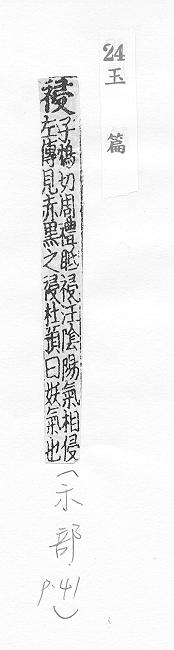 24
玉篇
祲子鴆切周禮眡祲注陰陽氣相侵
左傳見赤黑之祲杜預曰妖氣也
(示部.
p.41)